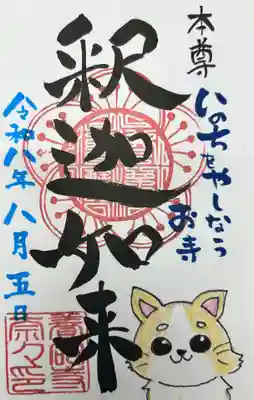 本尊
いのちをやしなう
お寺
釈迦如来
令和八年八月五日